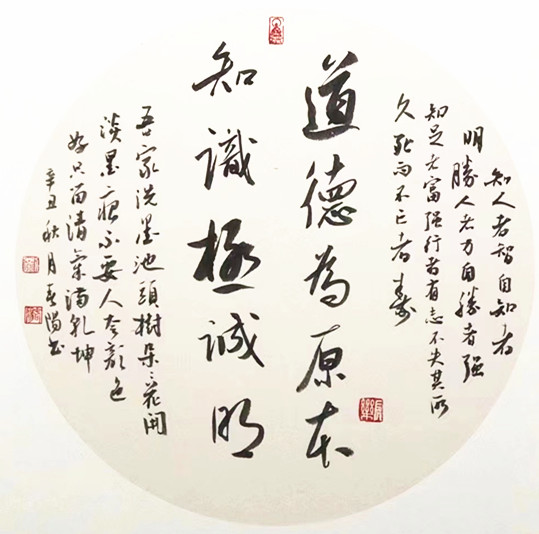 知人者智自知者
明勝人者力自勝者强
知足者富强行者有志不失其所
久死而不亡者寿
道德為原本
知識極誠明
吾家洗墨池頭樹朵〻花開
淡墨痕不要人夸颜色
好只留清氣满乾坤
辛丑秋月陽书